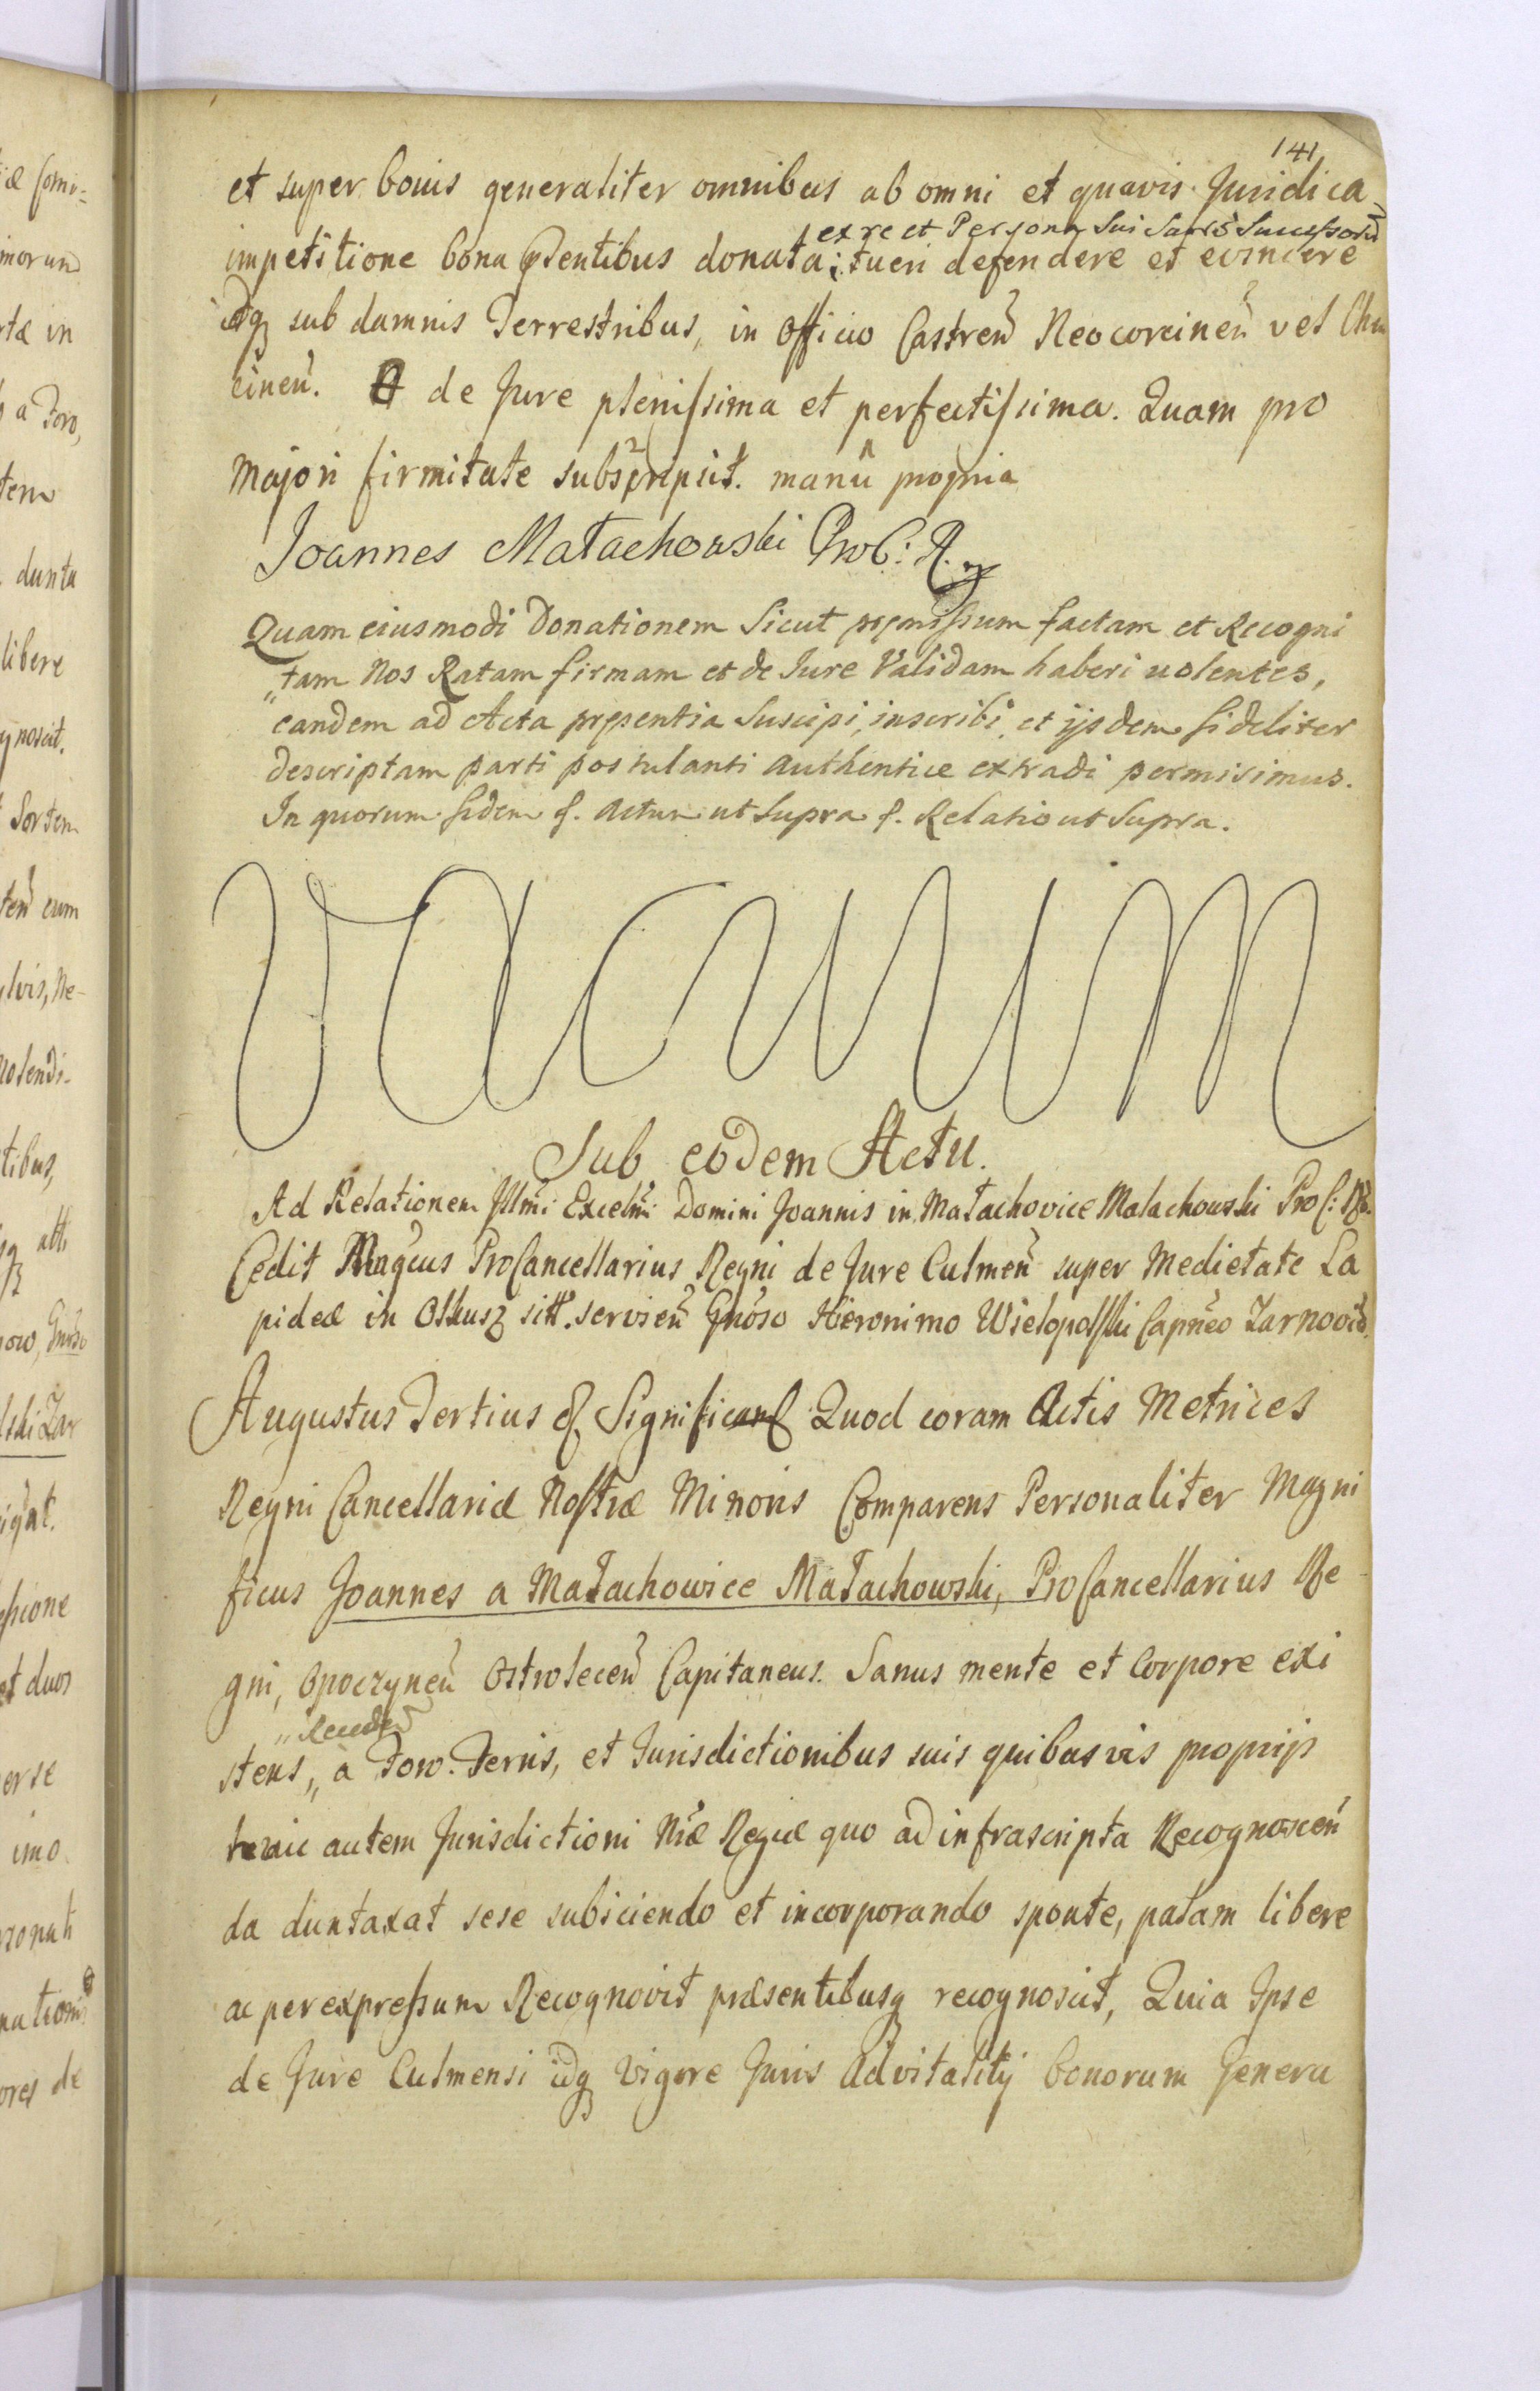 141
et super bonis generaliter omnibus ab omni et quavis Juridica
ex re et Persona Sui Suorũ Successorũ
impetitione bona pntentibus donata, tueri defendere et evincere
idq sub damnis Terrestribus, in Officio Castreñ Neocorcineñ vel Chę
cineñ. de Jure plenissima et perfectissima. Quam pro
Majori firmitate subscripsit. manũ propria
Joannes Małachowski ProC: R.
Quam eiusmodi Donationem Sicut pręmissum factam et Recogni
„tam Nos Ratam firmam et de Iure Validam haberi uolentes,
eandem ad Acta pręsentia Suscipi, inscribi, et ijsdem fideliter
descriptam parti postulanti Authentice extradi permisimus.
In quorum fidem &. Actum ut Supra &. Relatio ut Supra.
Vacuum
Sub eodem Actu.
Ad Relationem Illmi Excelmi Domini Joannis in Małachovice Małachowski Pro C: R.
Cedit Magcus ProCancellarius Regni de Jure Culmeñ super Medietate La
pideæ in Olkusz sitt. servieñ Gnoso Hieronimo Wielopolski Capneo Zarnovieñ.
Augustus Tertius & Significam& Quod coram Actis Metrices
Regni Cancellariæ Nostræ Minoris Comparens Personaliter Magni
ficus Joannes a Małachowice Małachowski, ProCancellarius Re
gni, Opoczyneñ Ostroleceñ Capitaneus. Sanus mente et Corpore exi
stens, „ a Foro. Terris, et Jurisdictionibus suis quibusvis proprijs
huic autem Jurisdictioni Nræ Regiæ quo ad infrascripta Recognosceñ
da duntaxat sese subiciendo et incorporando sponte, palam libere
ac per expressum Recognovit præsentibusq recognoscit, Quia Ipse
de Jure Culmensi idq Vigore Juris Advitalitij bonorum Genera